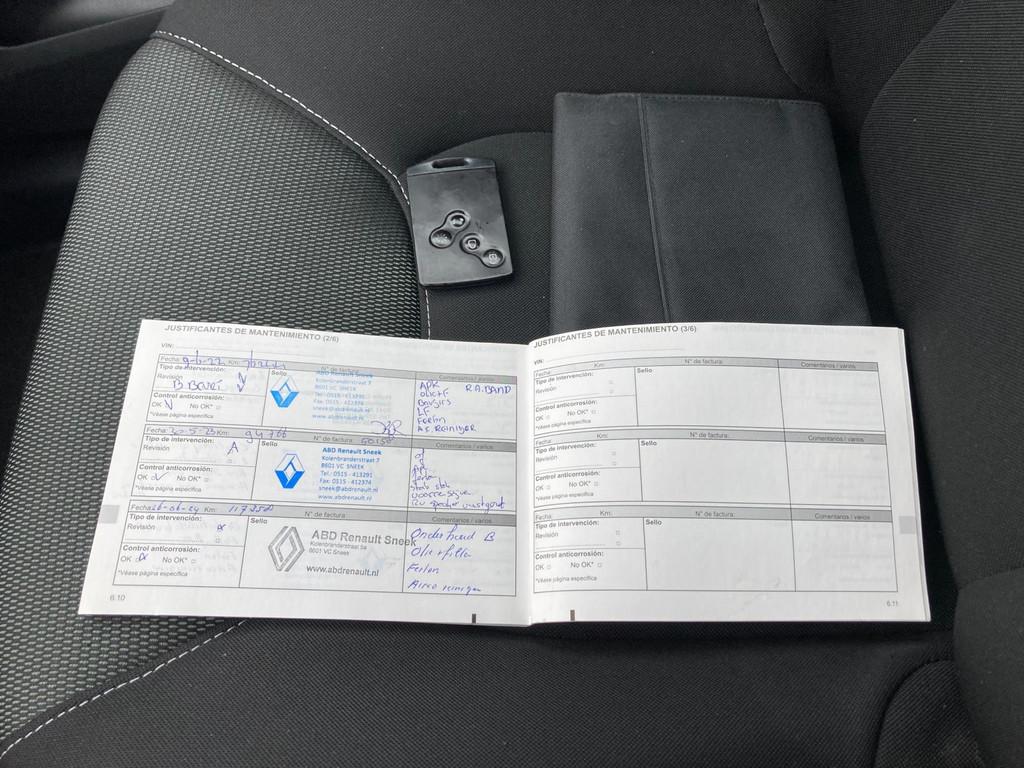 JUSTIFICANTES DE MANTENIMIENTO (2/6)
VIN:
Fecha: Km: N° de factura: Comentarios / varios
Tipo de intervención:
Revisión
B
Sello
ABD Renault Sneek
Kolenbranderstraat 7
8601 VC SNEEK
Tel.: 0515 - 413291
Fax: 0515 - 412374
sneek@abdrenault.nl
www.abdrenault.nl
APK R.A.BAND
Control anticorrosión:
OK No OK*
*Véase página específica
Fecha: Km: 94766 N° de factura: Comentarios / varios
Tipo de intervención:
Revisión
A
Sello
ABD Renault Sneek
Kolenbranderstraat 7
8601 VC SNEEK
Tel.: 0515 - 413291
Fax: 0515 - 412374
sneek@abdrenault.nl
www.abdrenault.nl
Control anticorrosión:
OK No OK*
*Véase página específica
Fecha: 26-06-24 Km: N° de factura: Comentarios / varios
Tipo de intervención:
Revisión
Sello
ABD Renault Sneek
Kolenbranderstraat
8601 VC Sneek
www.abdrenault.nl
Onderhoud B
Oliefilter
Control anticorrosión:
OK No OK*
*Véase página específica
6.10
JUSTIFICANTES DE MANTENIMIENTO (3/6)
VIN:
Fecha: Km: N° de factura: Comentarios / varios
Tipo de intervención:
Revisión
Sello
Control anticorrosión:
OK No OK*
*Véase página específica
Fecha: Km: N° de factura: Comentarios / varios
Tipo de intervención:
Revisión
Sello
Control anticorrosión:
OK No OK*
*Véase página específica
Fecha: Km: N° de factura: Comentarios / varios
Tipo de intervención:
Revisión
Sello
Control anticorrosión:
OK No OK*
*Véase página específica
6.11